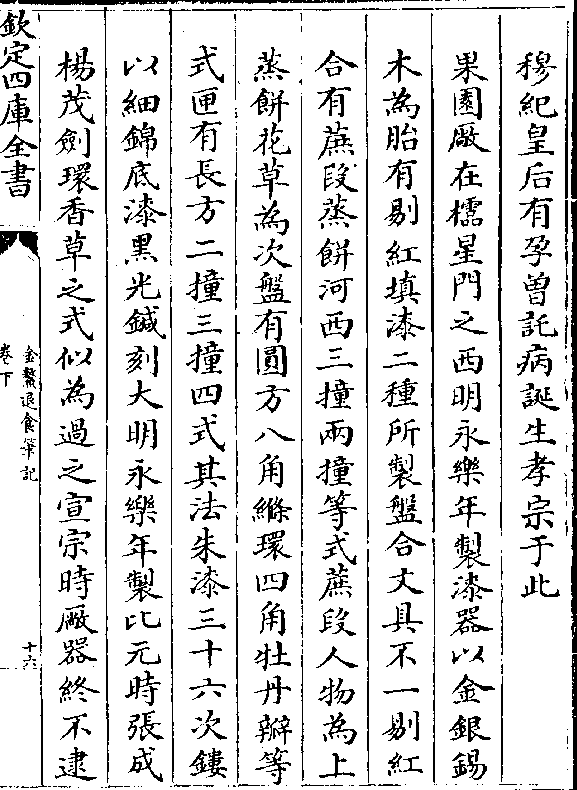 穆紀皇后有孕曽託病誕生孝宗于此
果園厰在櫺星門之西明永樂年製漆器以金銀錫
木為胎有剔紅填漆二種所製盤合文具不一剔紅
合有蔗段蒸餅河西三撞兩撞等式蔗段人物為上
蒸餅花草為次盤有圓方八角縧環四角牡丹瓣等
式匣有長方二撞三撞四式其法朱漆三十六次鏤
以細錦底漆黒光鍼刻大明永樂年製比元時張成
楊茂劍環香草之式似為過之宣宗時厰器終不逮
欽定四庫全書
金鰲退食筆記
卷下
十六